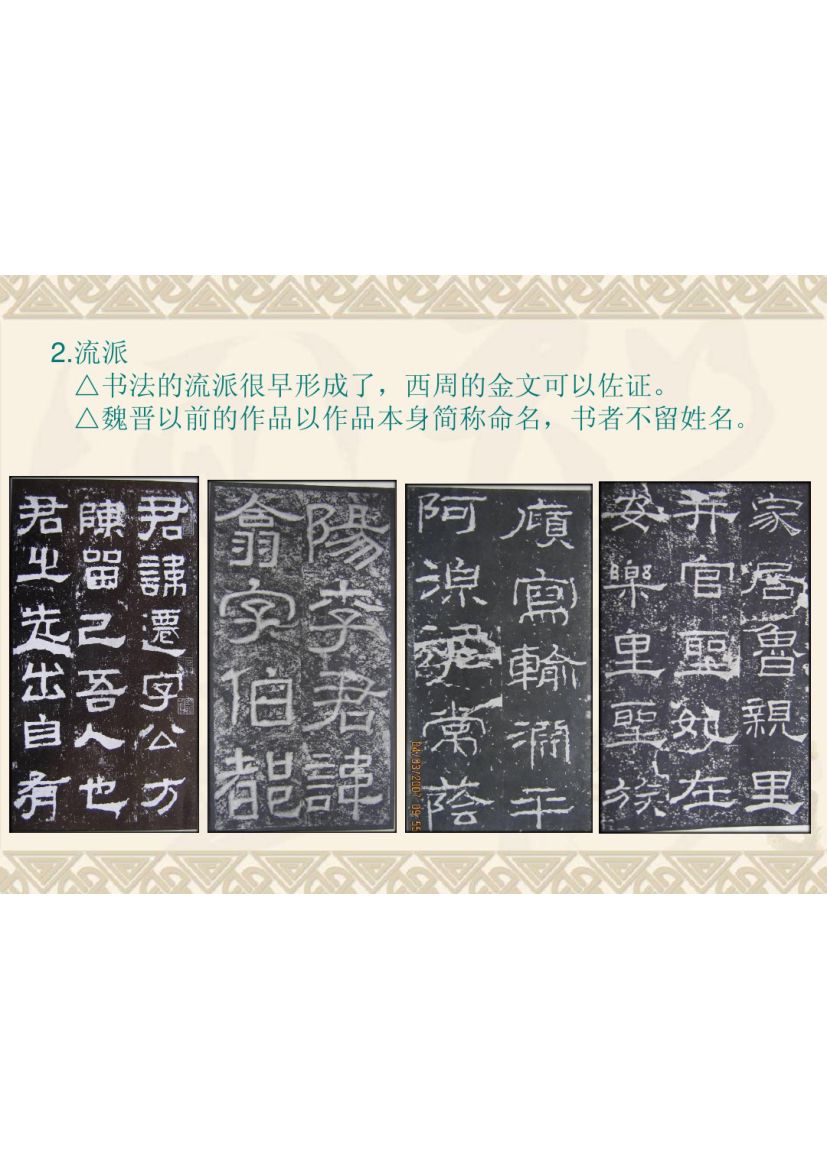 2.流派
△书法的流派很早形成了，西周的金文可以佐证。
△魏晋以前的作品以作品本身简称命名，书者不留姓名。
君諱遷字公方
陳留己吾人也
君之先出自有
陽李君諱
翕字伯都
廎寫輸淵平
阿湶常蔭
04/03/2007 09:55
家居魯親里
并官聖妃在
安樂里聖族